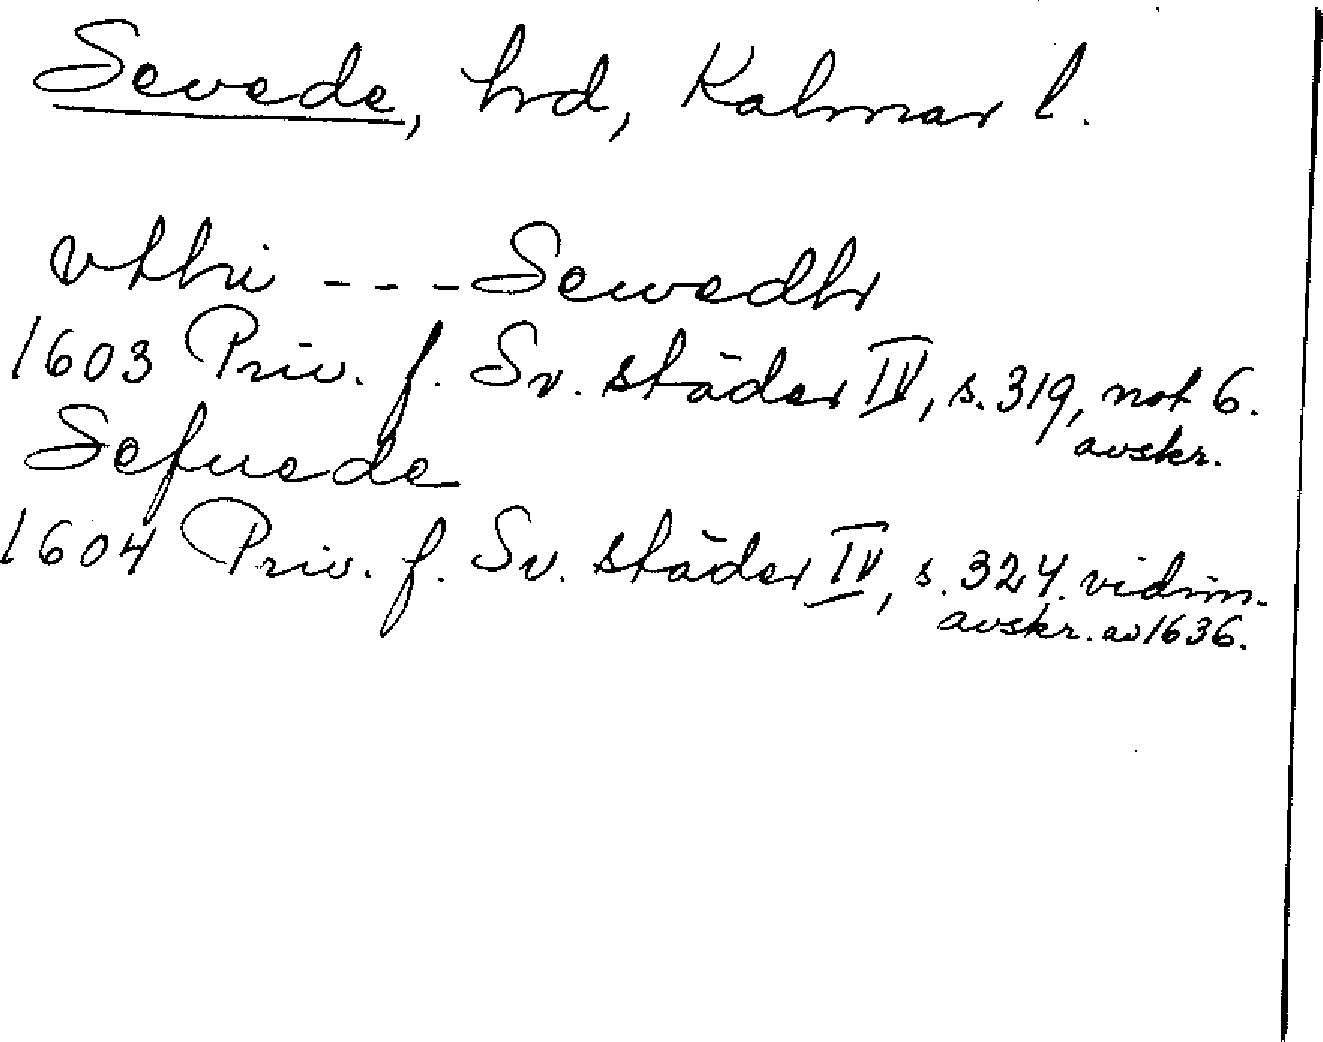 Sevede, hrd, Kalmar l.
vthi --- Sewedhr
1603 Priv. f. Sv. städer IV, s. 319, not 6.
avskr.
Sefuede
1604 Priv. f. Sv. städer IV, s. 324. vidim.
avskr. av 1636.